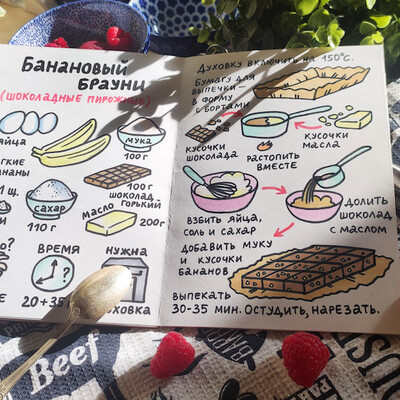 Банановый
брауни
(шоколадные пирожные)
яйца
мука
100 г
бананы
1 щ.
сахар
110 г
100 г
шоколад
горький
масло
200 г
?
время
20+35
нужна
духовка
Духовку включить на 150°С.
Бумагу для
выпечки –
в форму
с бортами
кусочки
шоколада
растопить
вместе
кусочки
масла
взбить яйца,
соль и сахар
долить
шоколад
с маслом
добавить муку
и кусочки
бананов
выпекать
30-35 мин. Остудить, нарезать.
Beef